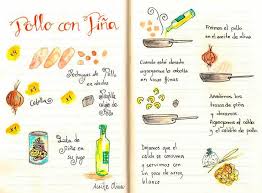 Pollo con Piña
x4
Pechugas de Pollo
en dados
x1
Cebolla
x1
Pastilla
caldo de
Pollo
Lata de
Piña en
su jugo
Aceite Oliva
Freimos el pollo
en el aceite de oliva
Cuando esté dorado
agregamos la cebolla
en tacos finos
Añadimos los
trozos de piña
y
Agregamos el caldo
y el caldito de pollo
Dejamos que el
caldo se consuma
y servimos con
un poco de arroz
blanco